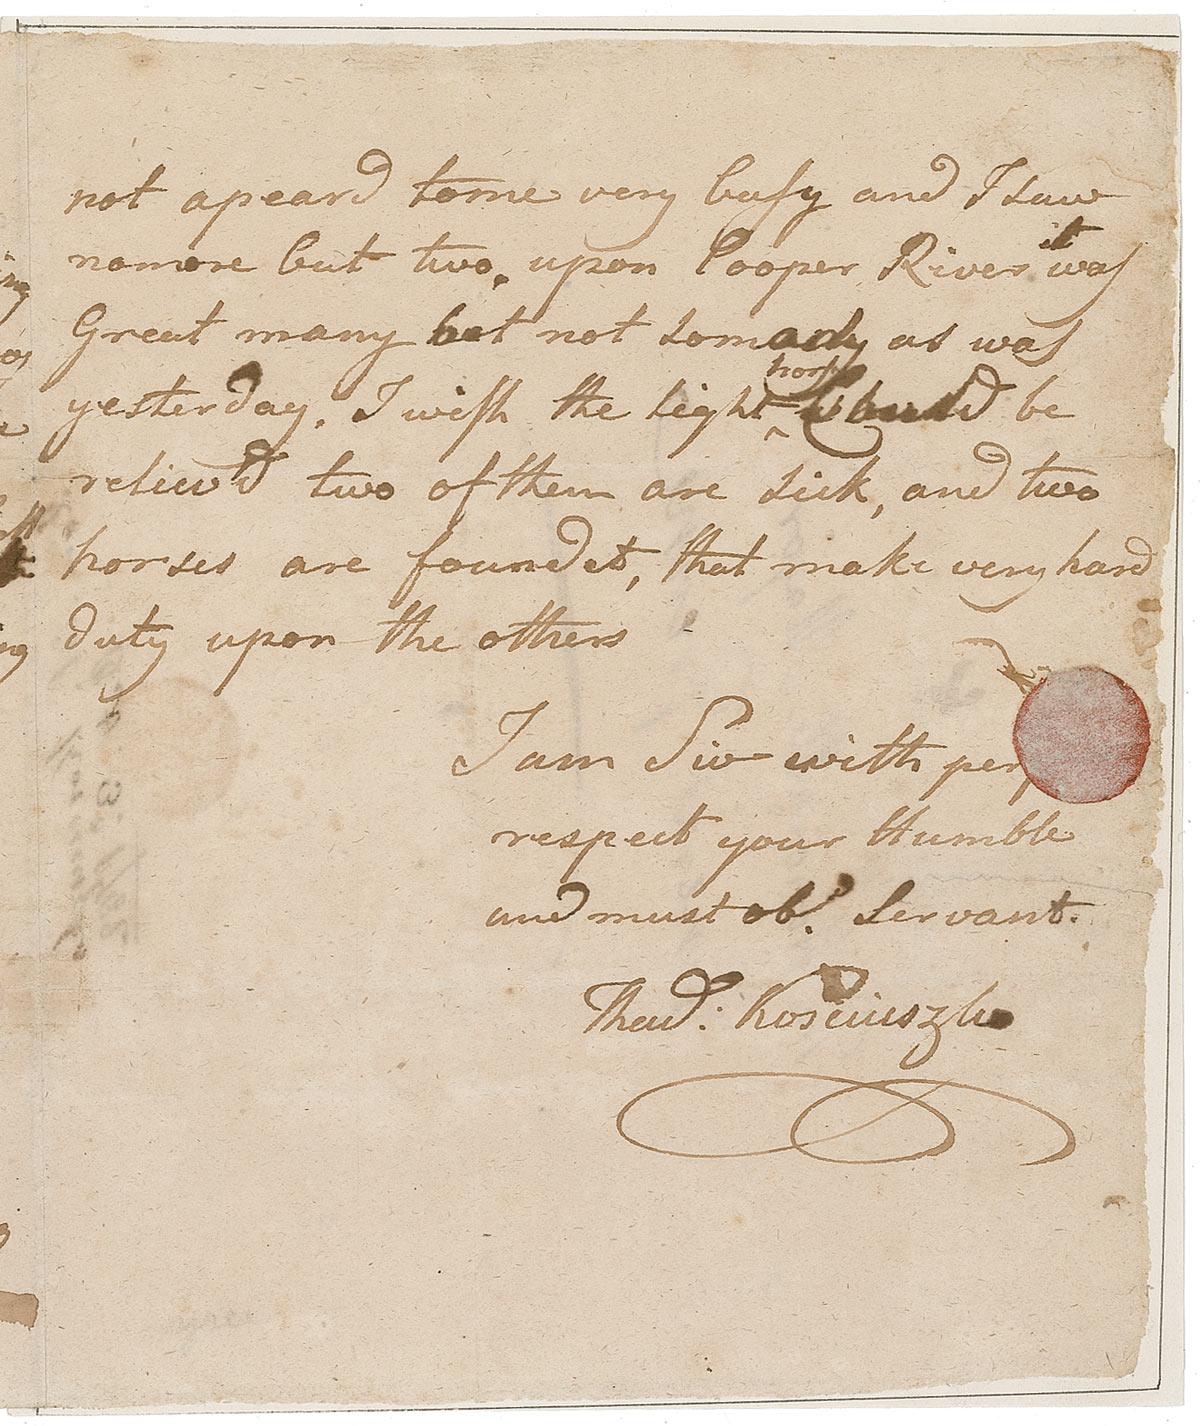 not apeard tome very busy and I saw
nomore but two, upon Cooper River it was
Great many but not somany as was
yesterday. I wish the light horse Should be
reliew'd two of them are sick, and two
horses are foundet, that make very hard
duty upon the others
I am Sir with per
respect your Humble
and must ob.t Servant.
Thad: Kosciuszko